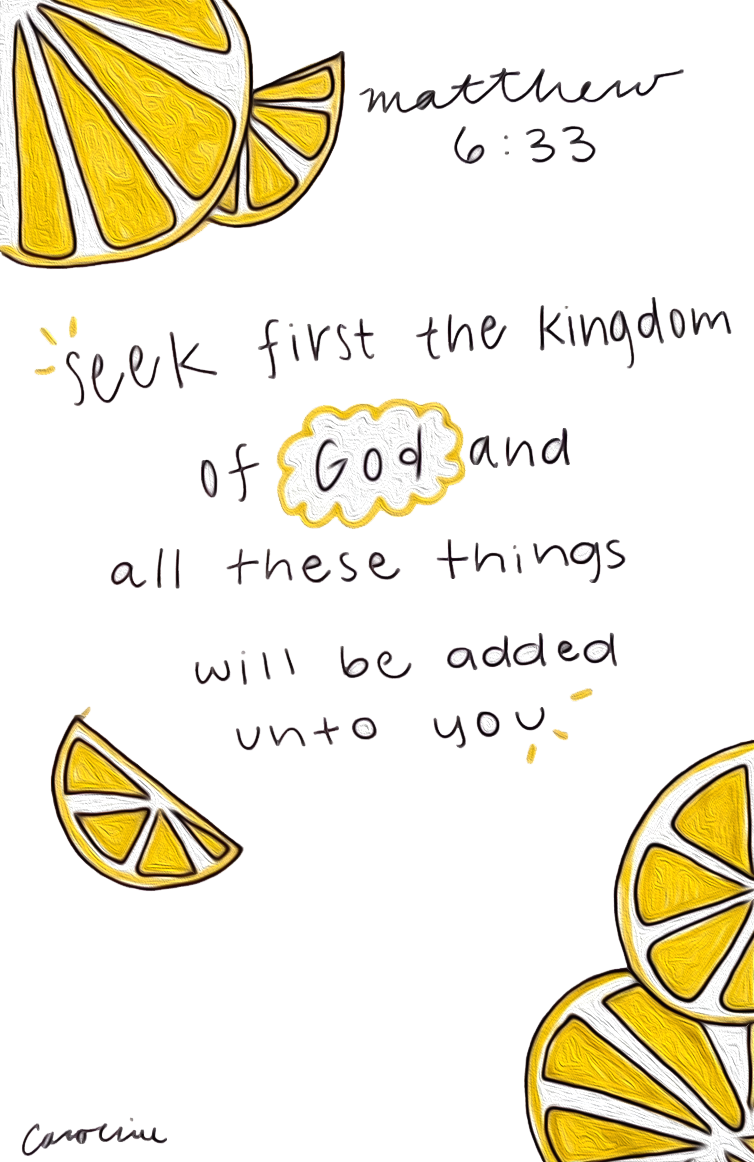 matthew
6:33
seek first the kingdom
of God and
all these things
will be added
unto you
Caroline